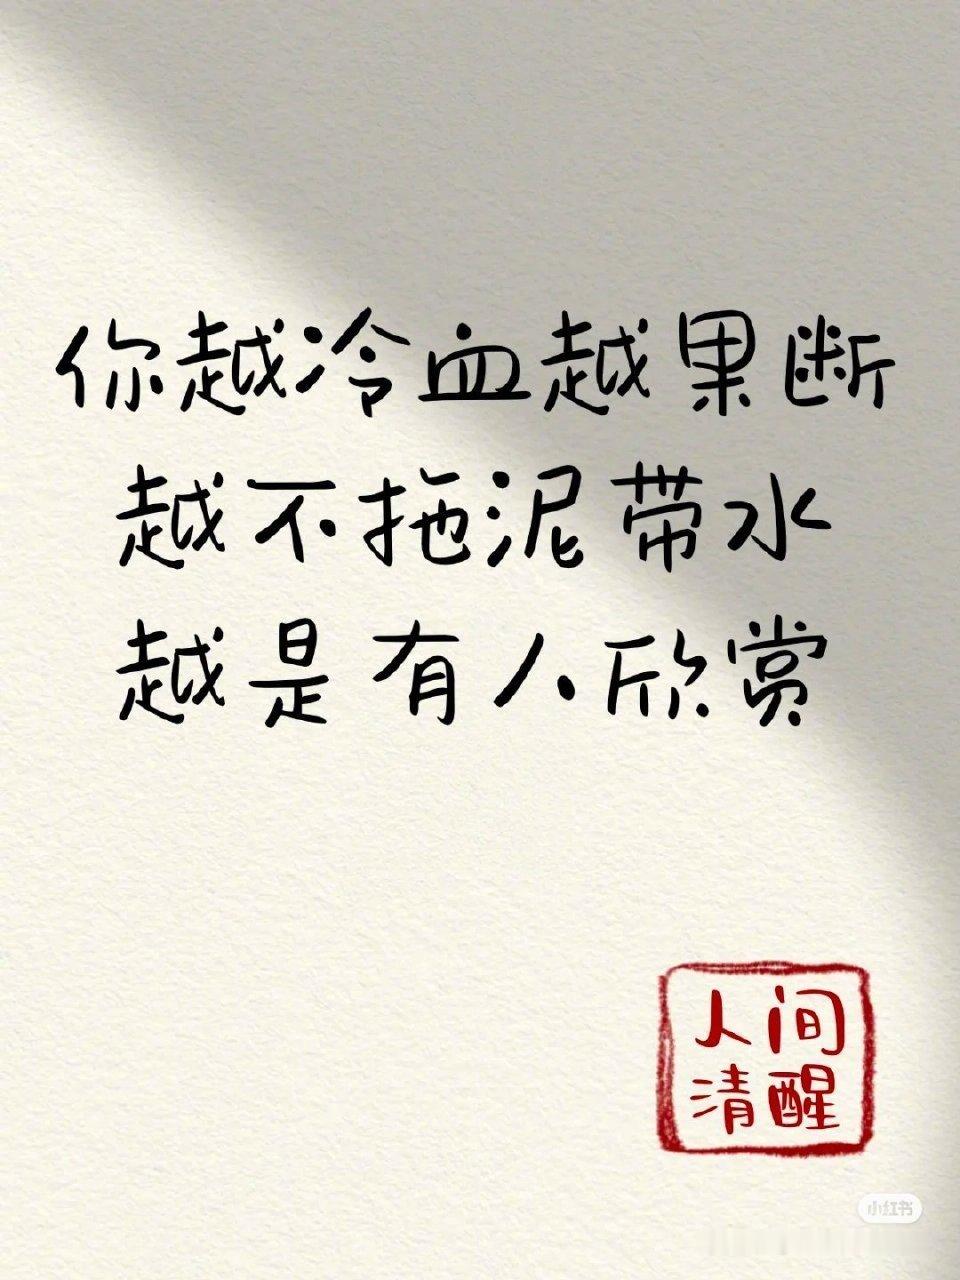 你越冷血越果断
越不拖泥带水
越是有人欣赏
人间
清醒
小红书